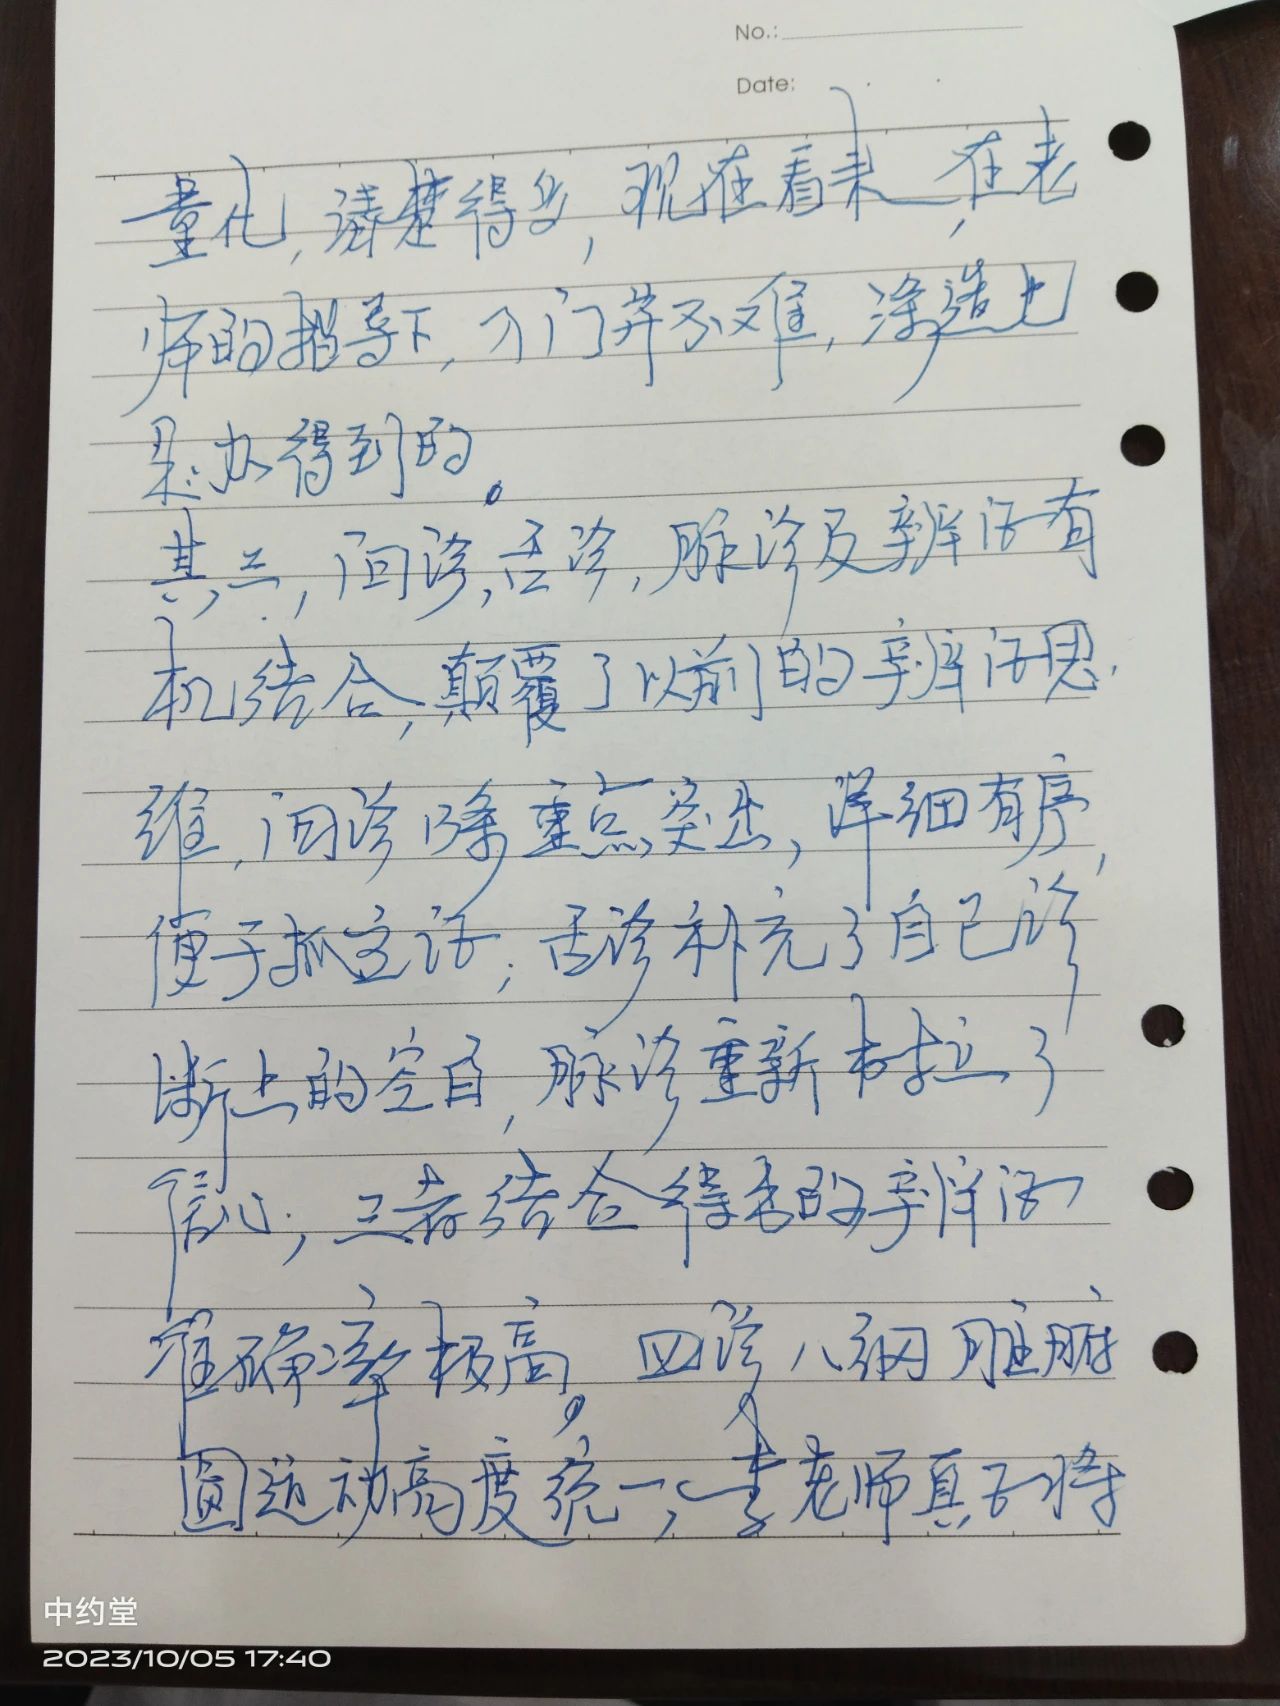 No.:
Date:
量化,清楚得多,现在看来,在老
师的指导下,入门并不难,深造也
是办得到的。
其三,问诊,舌诊,脉诊及辨证有
机结合,颠覆了以前的辨证思
维,问诊除重点突出,详细有序,
便于抓主证,舌诊补充了自己诊
断上的空白,脉诊重新树立了
信心,三者结合得来的辨证
准确率极高。四诊八纲脏腑
圆运动高度统一,李老师真正将
中约堂
2023/10/05 17:40